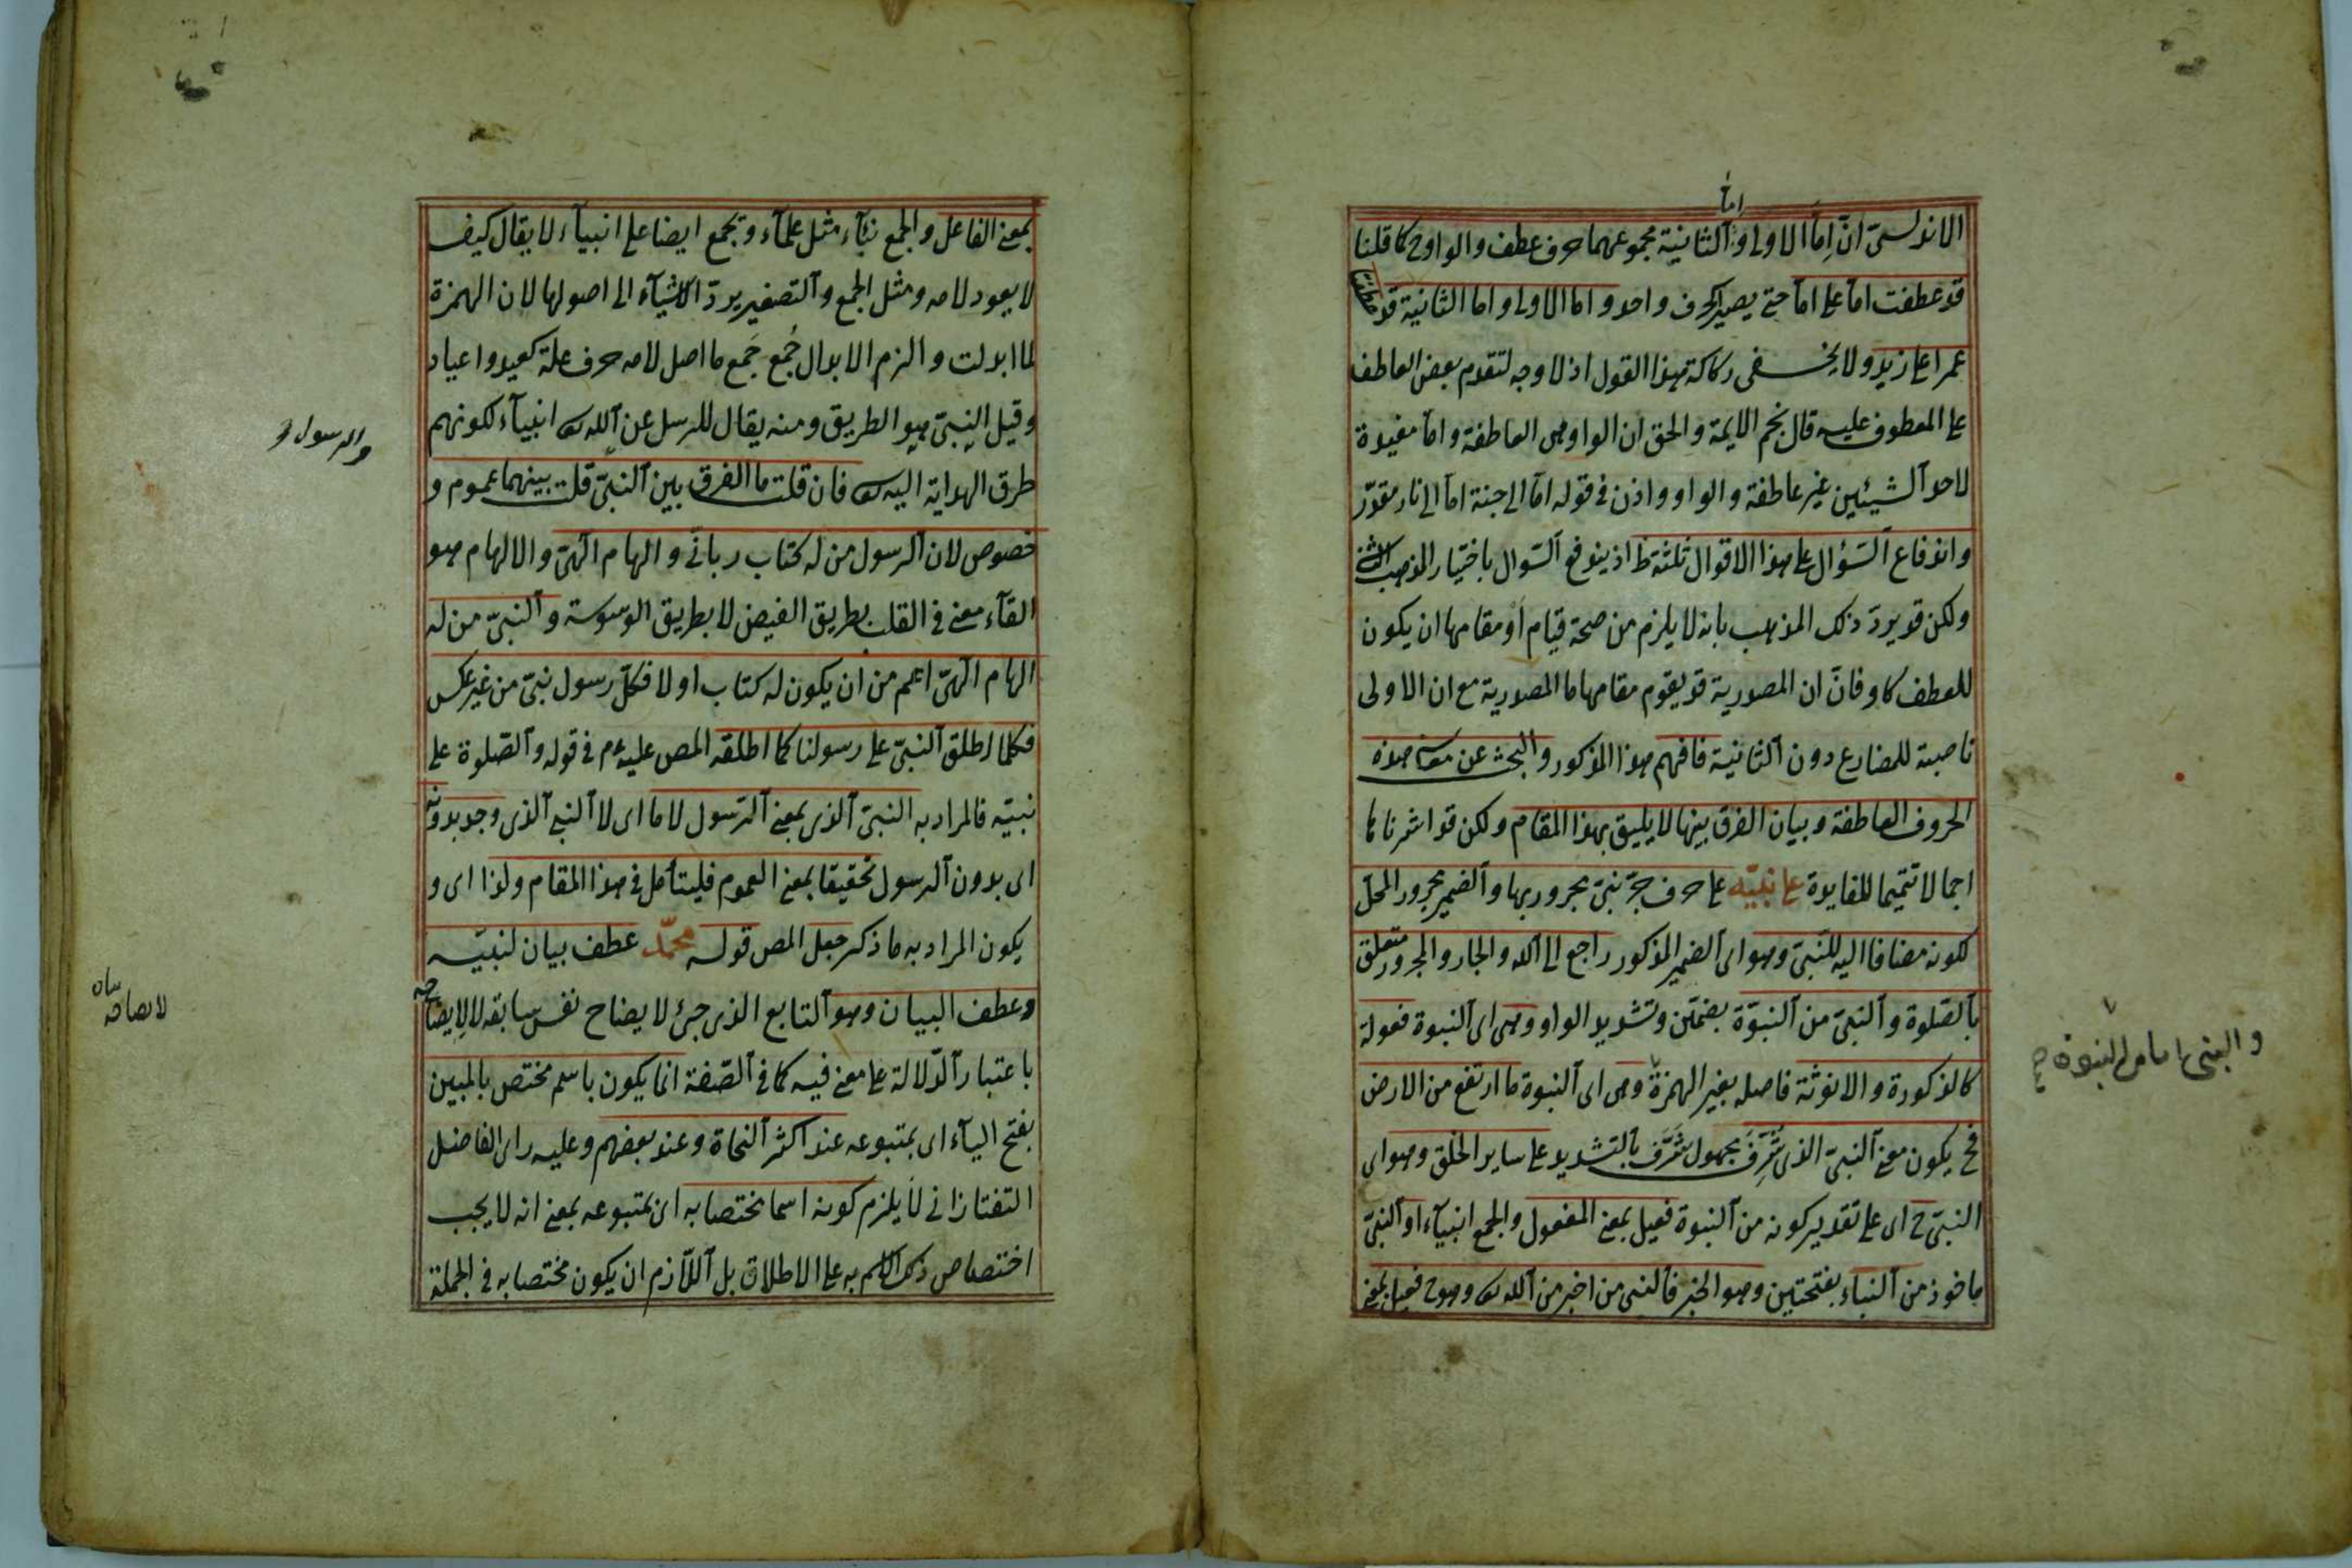 اما
الاندلسيّ انّ اِمّا الاولى و الثانية مجموعهما حرف عطف والواو ح كما قلنا
قد عطفت امّا على امّا حتى يصير كحرف واحد واما الاولى واما الثانية قد عطفتا
عمرا على زيد ولا يخفى ركاكة هذا القول اذ لا وجه لتقدم بعض العاطف
على المعطوف عليه قال نجم الايمة والحق ان الواو هى العاطفة وامّا مفيدة
لاحد الشيئين غير عاطفة والواو واذن فى قوله امّا الى جنة امّا الى نار مقدّر
واندفاع السّؤال على هذا الاقوال ثلثة ظ اذ يندفع السّوال باختيار المذهب الثانى
ولكن قد يردّ ذلك المذهب بانه لا يلزم من صحة قيام أو مقامها ان يكون
للعطف كاو فانّ ان المصدرية قد يقوم مقامها ما المصدرية مع ان الاولى
ناصبة للمضارع دون الثانية فافهم هذا المذكور والبحث عن معانى هذه
الحروف العاطفة وبيان الفرق بينها لا يليق بهذا المقام ولكن قد اشرنا
اجمالا تتميما للفايدة على نبيّه على حرف جرّ نبىّ مجرور بها والضمير مجرور المحلّ
لكونه مضافا اليه للنبىّ وهو اى الضمير المذكور راجع الى الله والجار والمجرور متعلق
بالصّلوة والنبىّ من النبوّة بضمتين وتشديد الواو وهى اى النبوة فعولة
والنبى اما من النبوة صح
كالذكورة والانوثة فاصله بغير الهمزة وهى اى النبوة ما ارتفع من الارض
فح يكون معنى النبىّ الذى شُرِّفَ مجهول شَرَّفَ بالتشديد على ساير الخلق وهو اى
النبىّ ح اى على تقدير كونه من النبوة فعيل بمعنى المفعول والجمع انبيآء او النبىّ
ماخوذ من النباء بفتحتين وهو الخبر فالنبى من اخبر من الله تع وهو ح فعيل بمعنى
بمعنى الفاعل والجمع نبآء مثل علمآء وتجمع ايضا على انبيآء لا يقال كيف
لا يعود لامه ومثل الجمع والتصغير يردّ الاشيآء الى اصولها لان الهمزة
لما ابدلت والزم الابدال جُمع جَمع ما اصل لامه حرف علة كعيد واعياد
وقيل النبىّ هو الطريق ومنه يقال للرسل عن الله تع انبيآء لكونهم
والرسول
طرق الهداية اليه تع فان قلت ما الفرق بين النبىّ قلت بينهما عموم و
خصوص لان الرسول من له كتاب ربانّى والهام الهىّ والالهام هو
القآء معنى فى القلب بطريق الفيض لا بطريق الوسوسة والنبىّ من له
الهام الهىّ اعم من ان يكون له كتاب او لا فكلّ رسول نبىّ من غير عكس
فكلما اطلق النبىّ على رسولنا كما اطلقه المص عليه م فى قوله والصّلوة على
نبيّه فالمراد به النبىّ الذى بمعنى الرّسول لا ما اى لا النبى الذى وجد بدونه
اى بدون الرسول تحقيقا بمعنى العموم فليتأمل فى هذا المقام ولذا اى و
يكون المراد به ما ذكر جعل المص قوله محمّد عطف بيان لنبيّه
وعطف البيان وهو التابع الذى جئ لايضاح نفس سابقه لا لايضاحه
باعتبار الدّلالة على معنى فيه كما فى الصّفة انما يكون باسم مختص بالمبين
بفتح اليآء اى بمتبوعه عند اكثر النحاة وعند بعضهم وعليه راى الفاضل
التفتازانى لا يلزم كونه اسما مختصا به اى بمتبوعه بمعنى انه لا يجب
اختصاص ذلك الاسم به على الاطلاق بل اللّازم ان يكون مختصا به فى الجملة